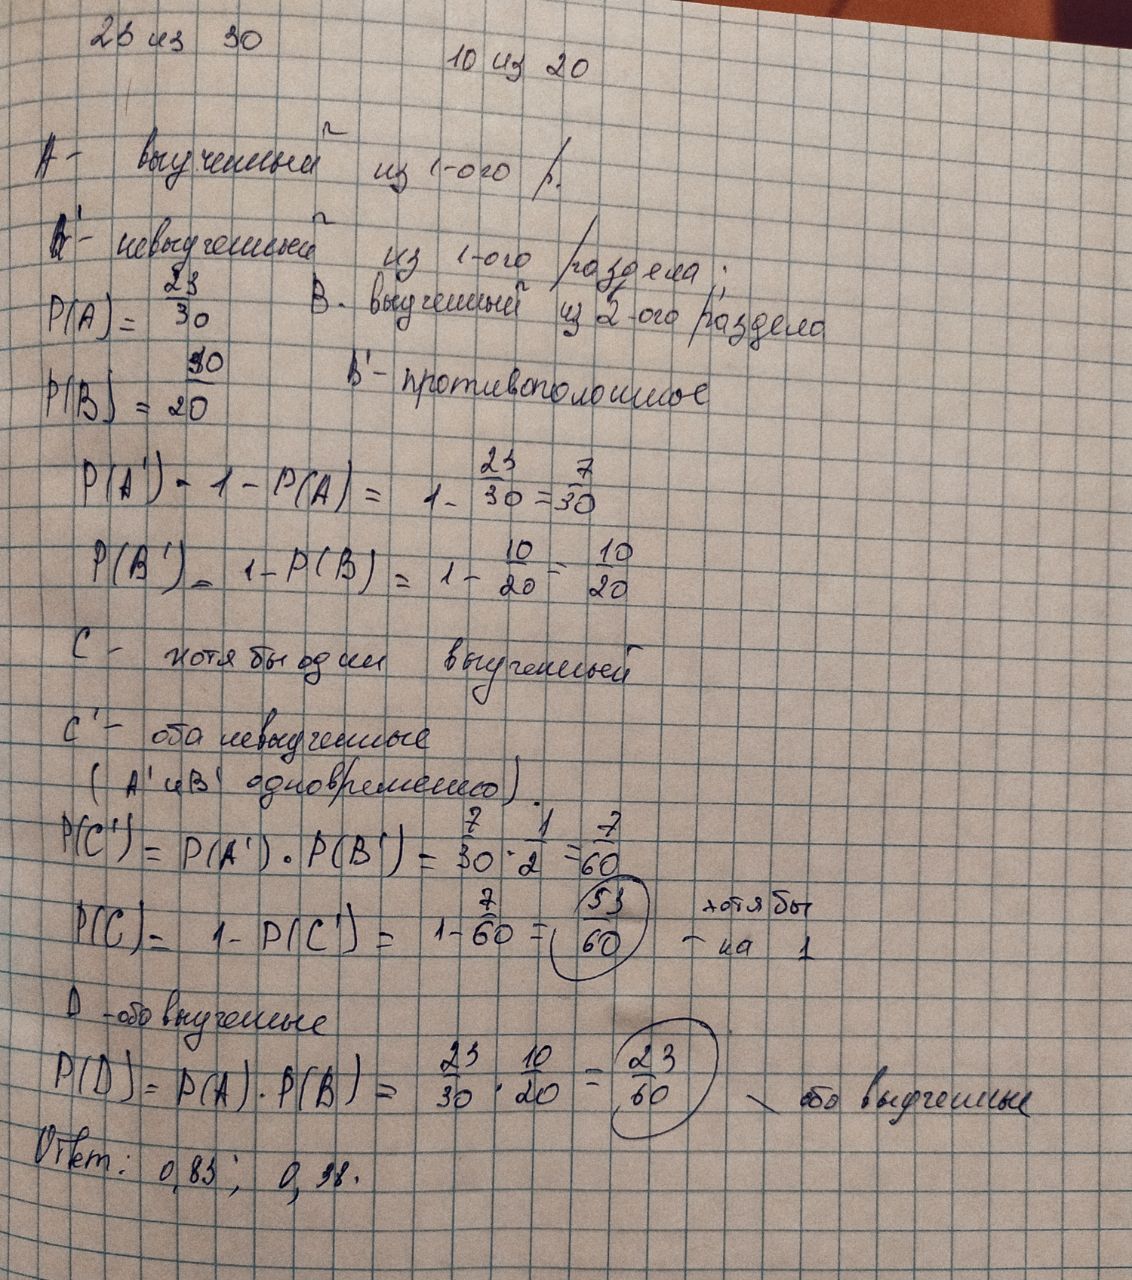 23 из 30
10 из 20
A - выученный из 1-ого р.
A' - невыученный из 1-ого раздела;
P(A) = 23/30 B - выученный из 2-ого раздела
P(B) = 10/20 B' - противоположное
P(A') = 1 - P(A) = 1 - 23/30 = 7/30
P(B') = 1 - P(B) = 1 - 10/20 = 10/20
C - хотя бы один выученный
C' - оба невыученные
(A' и B' одновременно).
P(C') = P(A') · P(B') = 7/30 · 1/2 = 7/60
P(C) = 1 - P(C') = 1 - 7/60 = 53/60 - хотя бы на 1
D - оба выученные
P(D) = P(A) · P(B) = 23/30 · 10/20 = 23/60 - оба выученные
Ответ: 0,83; 0,38.